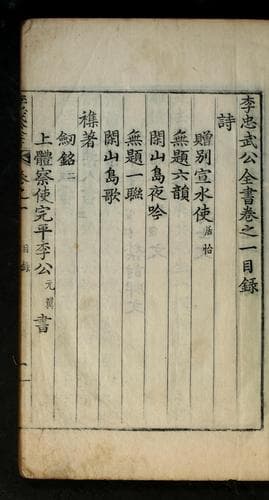 李忠武公全書卷之一目錄
詩
贈別宣水使居怡
無題六韻
閑山島夜吟
無題一聯
閑山島歌
襍著
劒銘二
上體察使完平李公元翼書
卷之一
目錄
一